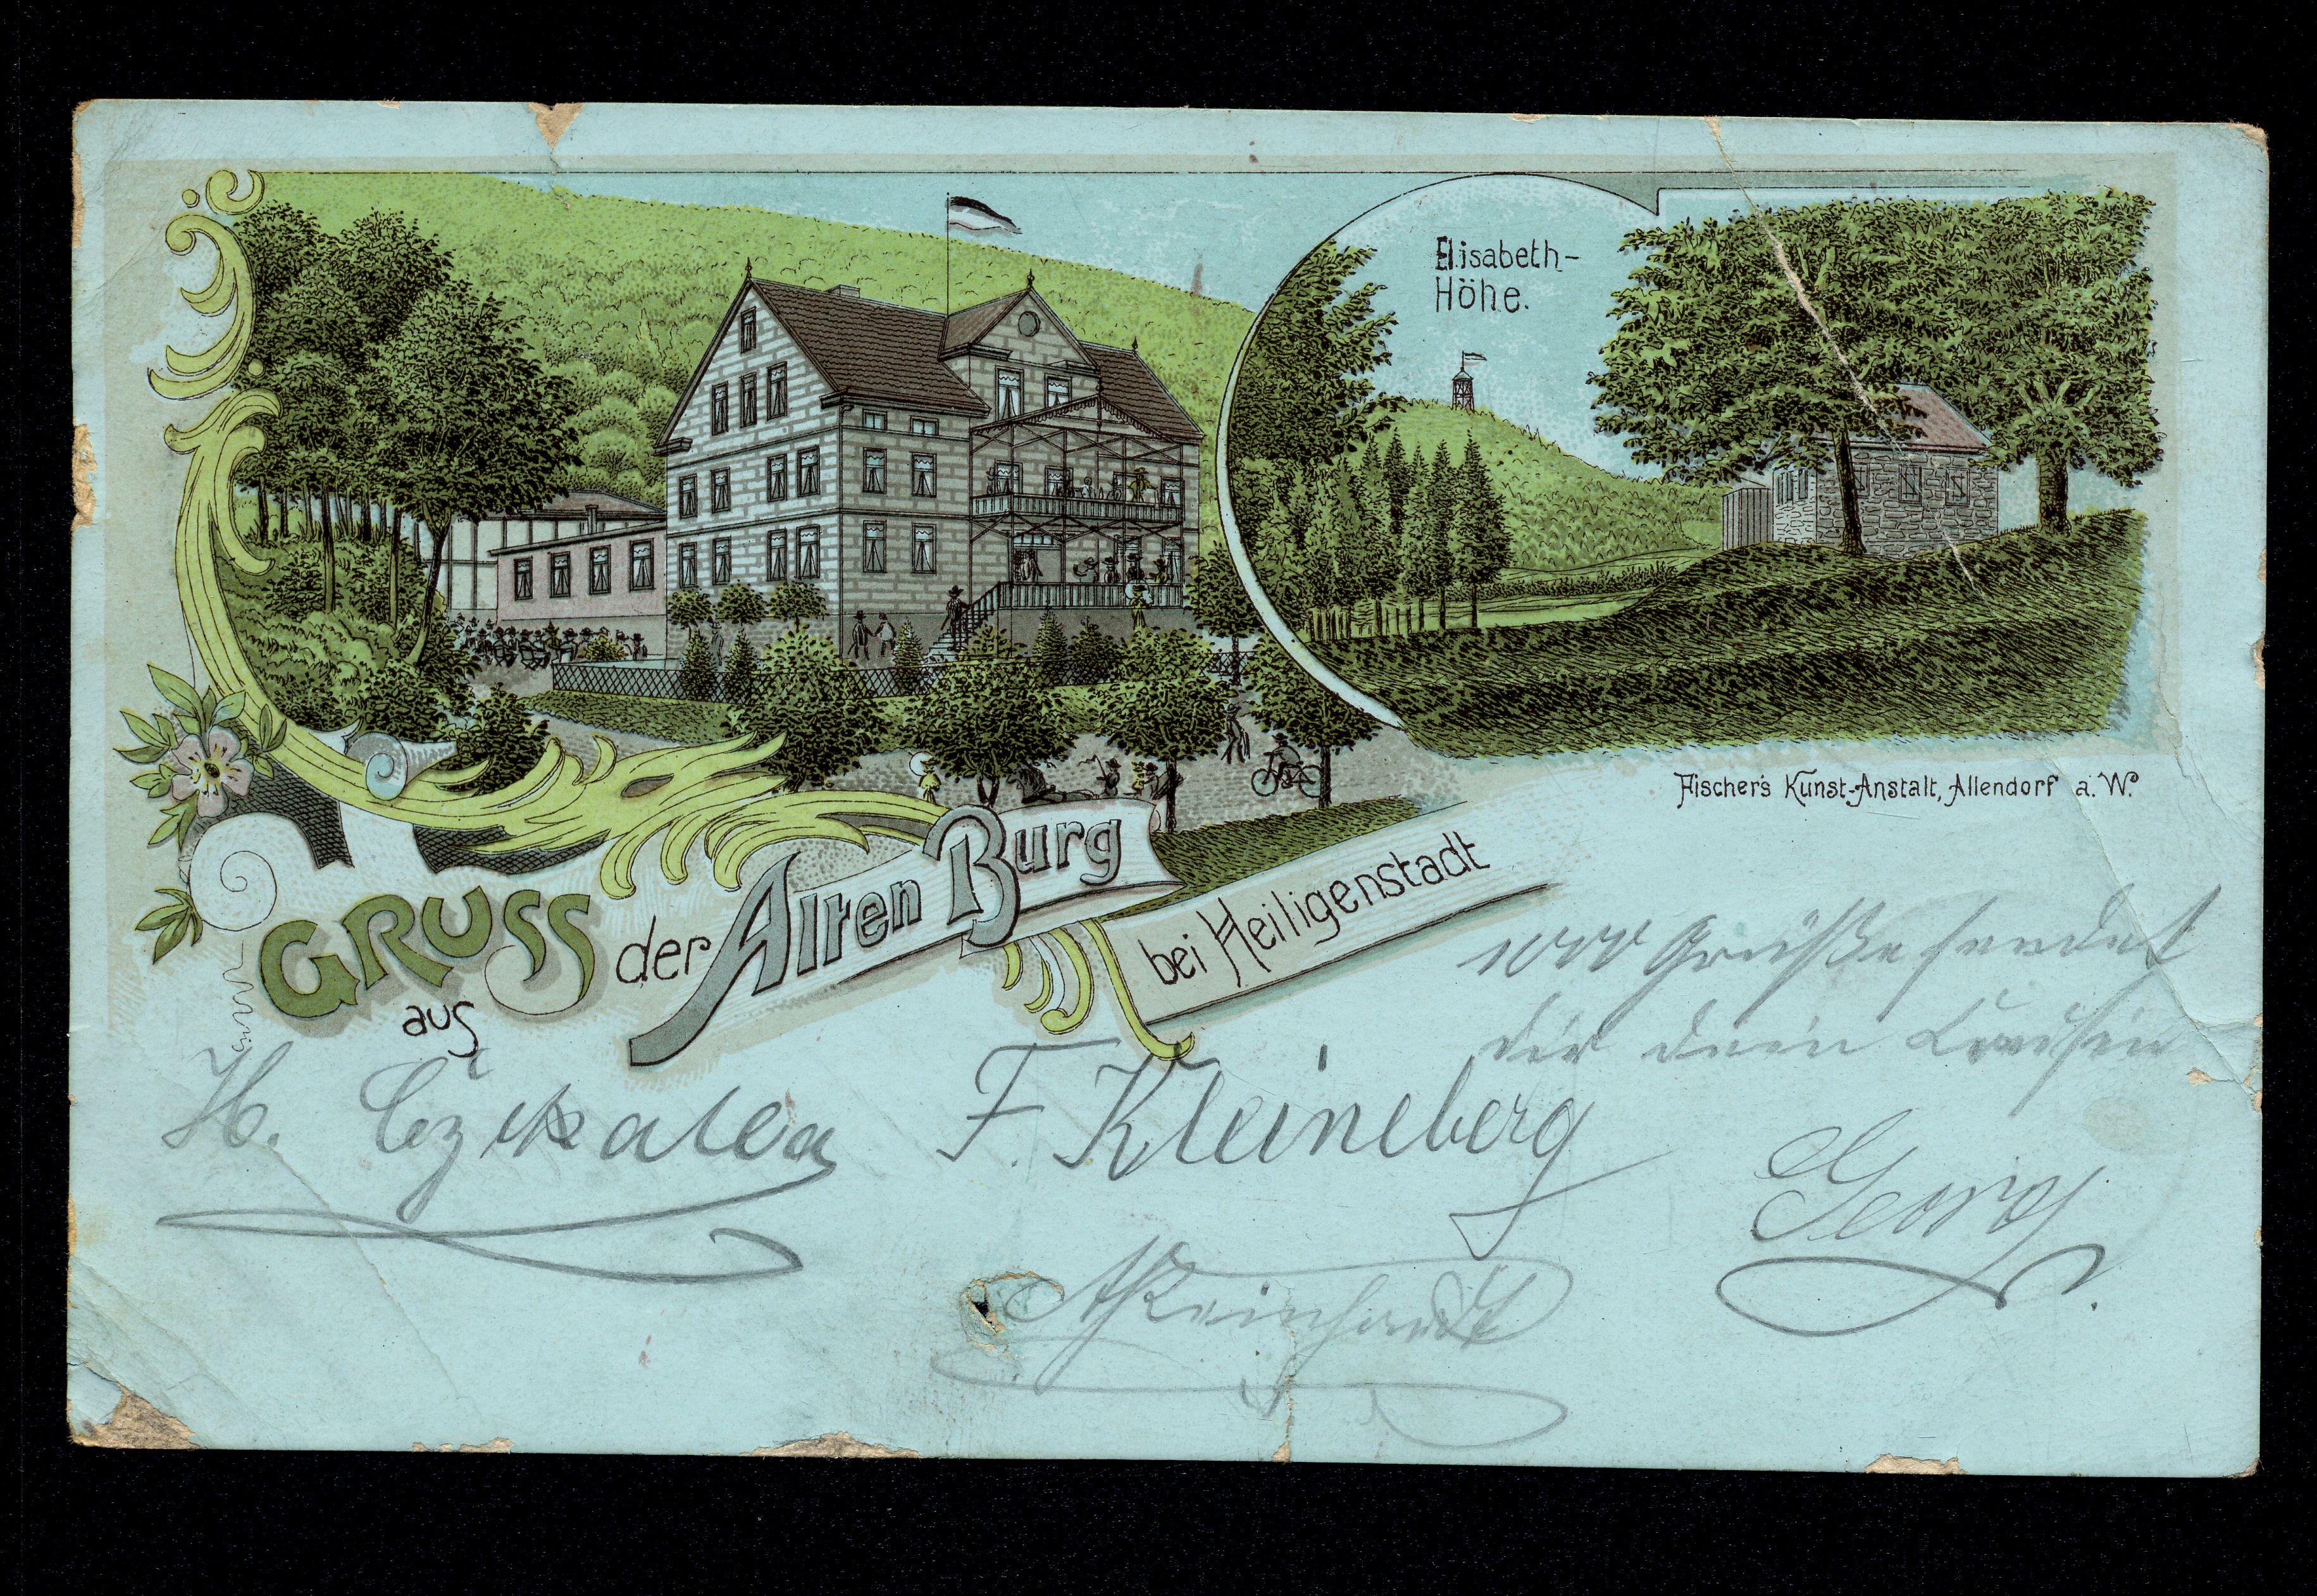 Elisabeth-
Höhe.
Fischer's Kunst-Anstalt, Allendorf a. W.
GRUSS
aus
der Alten Burg
bei Heiligenstadt
1000 Grüße sendet
dir dein
H.
F. Kleineberg
Georg
Reinhardt